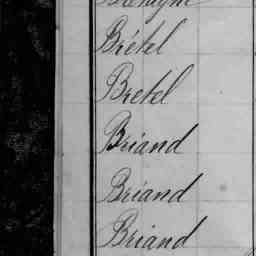 Brétel
Bretel
Briand
Briand
Briand